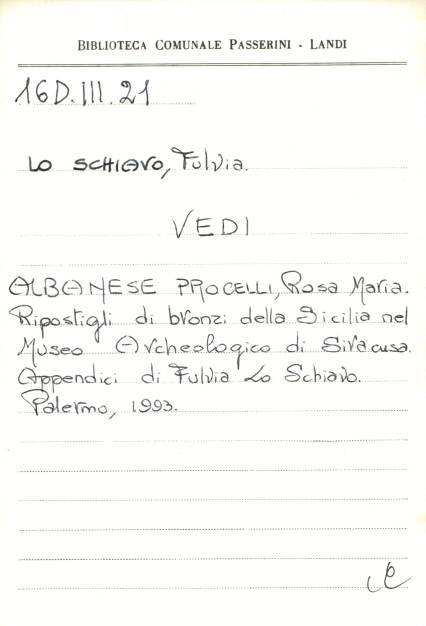 BIBLIOTECA COMUNALE PASSERINI - LANDI
16D.III.21
LO SCHIAVO, Fulvia.
VEDI
ALBANESE PROCELLI, Rosa Maria.
Ripostigli di bronzi della Sicilia nel
Museo Archeologico di Siracusa.
Appendici di Fulvia Lo Schiavo.
Palermo, 1993.